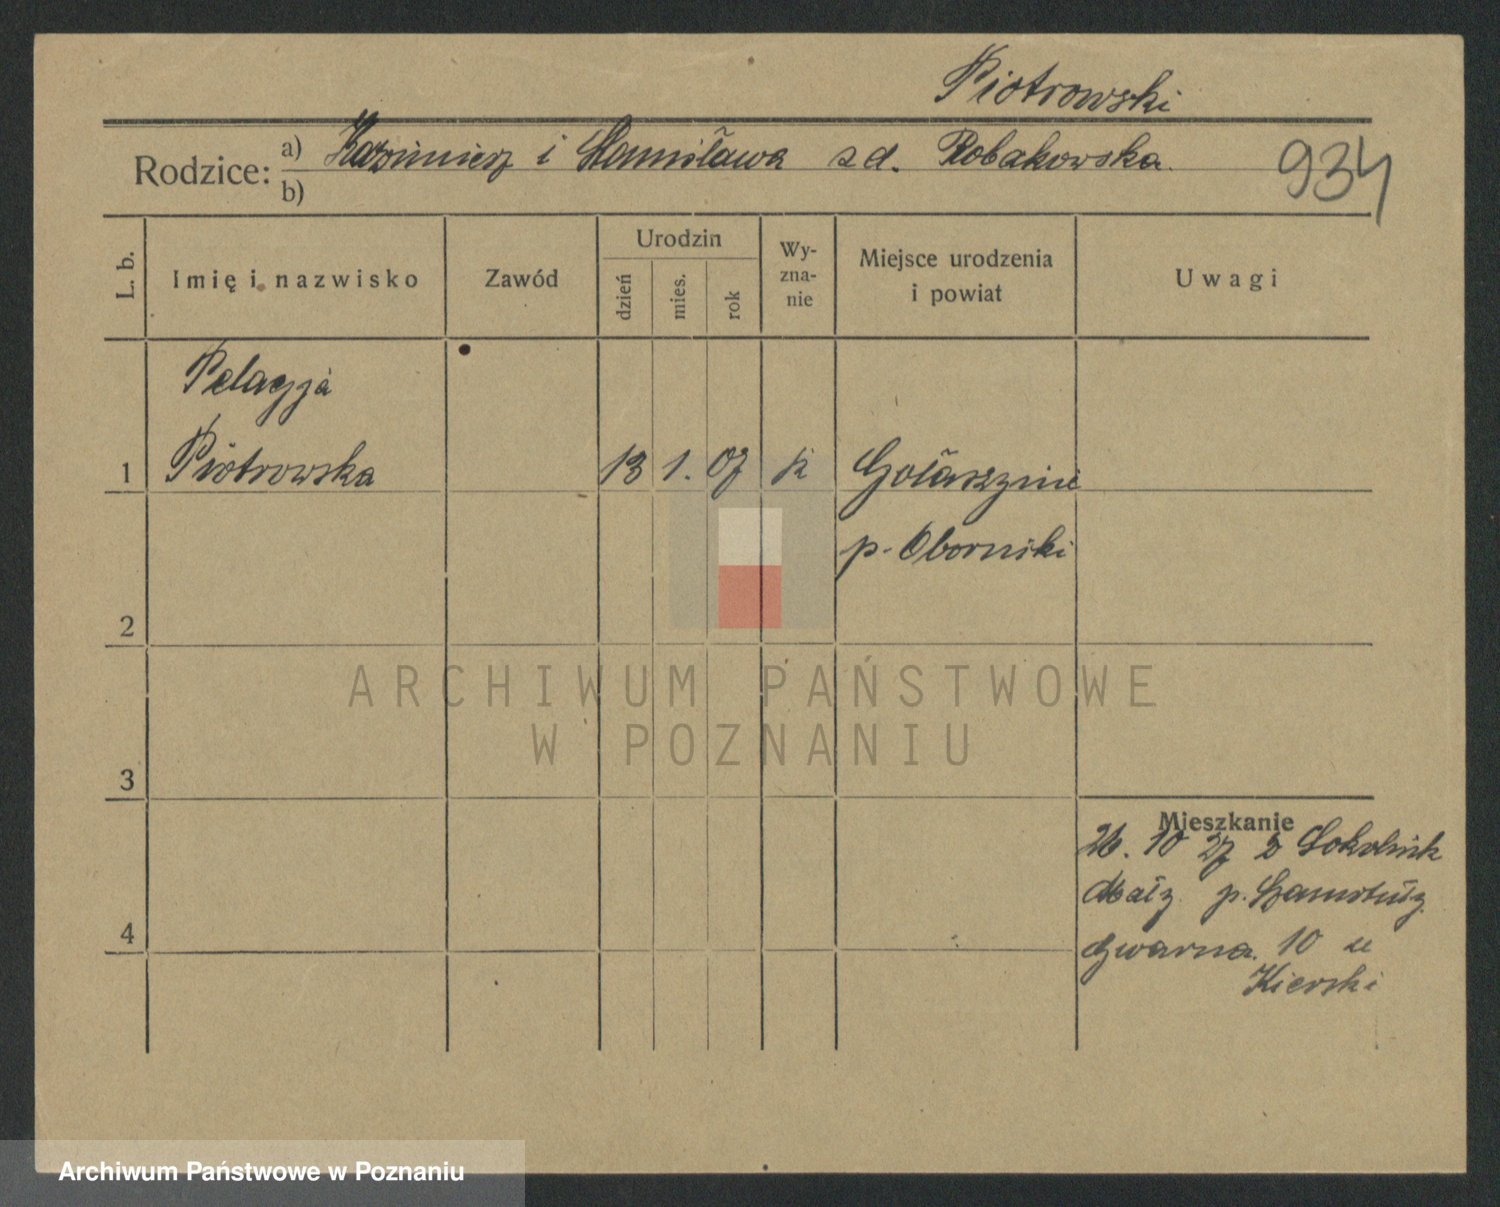 Piotrowski
Rodzice: a) Kazimierz i Stanisława z d. Robakowska.
b)
934
L. b.
Imię i nazwisko
Zawód
Urodzin
dzień
mies.
rok
Wy-
zna-
nie
Miejsce urodzenia
i powiat
Uwagi
Pelagja
1 Piotrowska 13 1. 07 k Gołaszyn
p. Oborniki
2
3
4
Mieszkanie
26. 10 27 z Sokolnik
Małz p. Szamotuły
Gwarna. 10 u
Kierski
ARCHIWUM PAŃSTWOWE
W POZNANIU
Archiwum Państwowe w Poznaniu